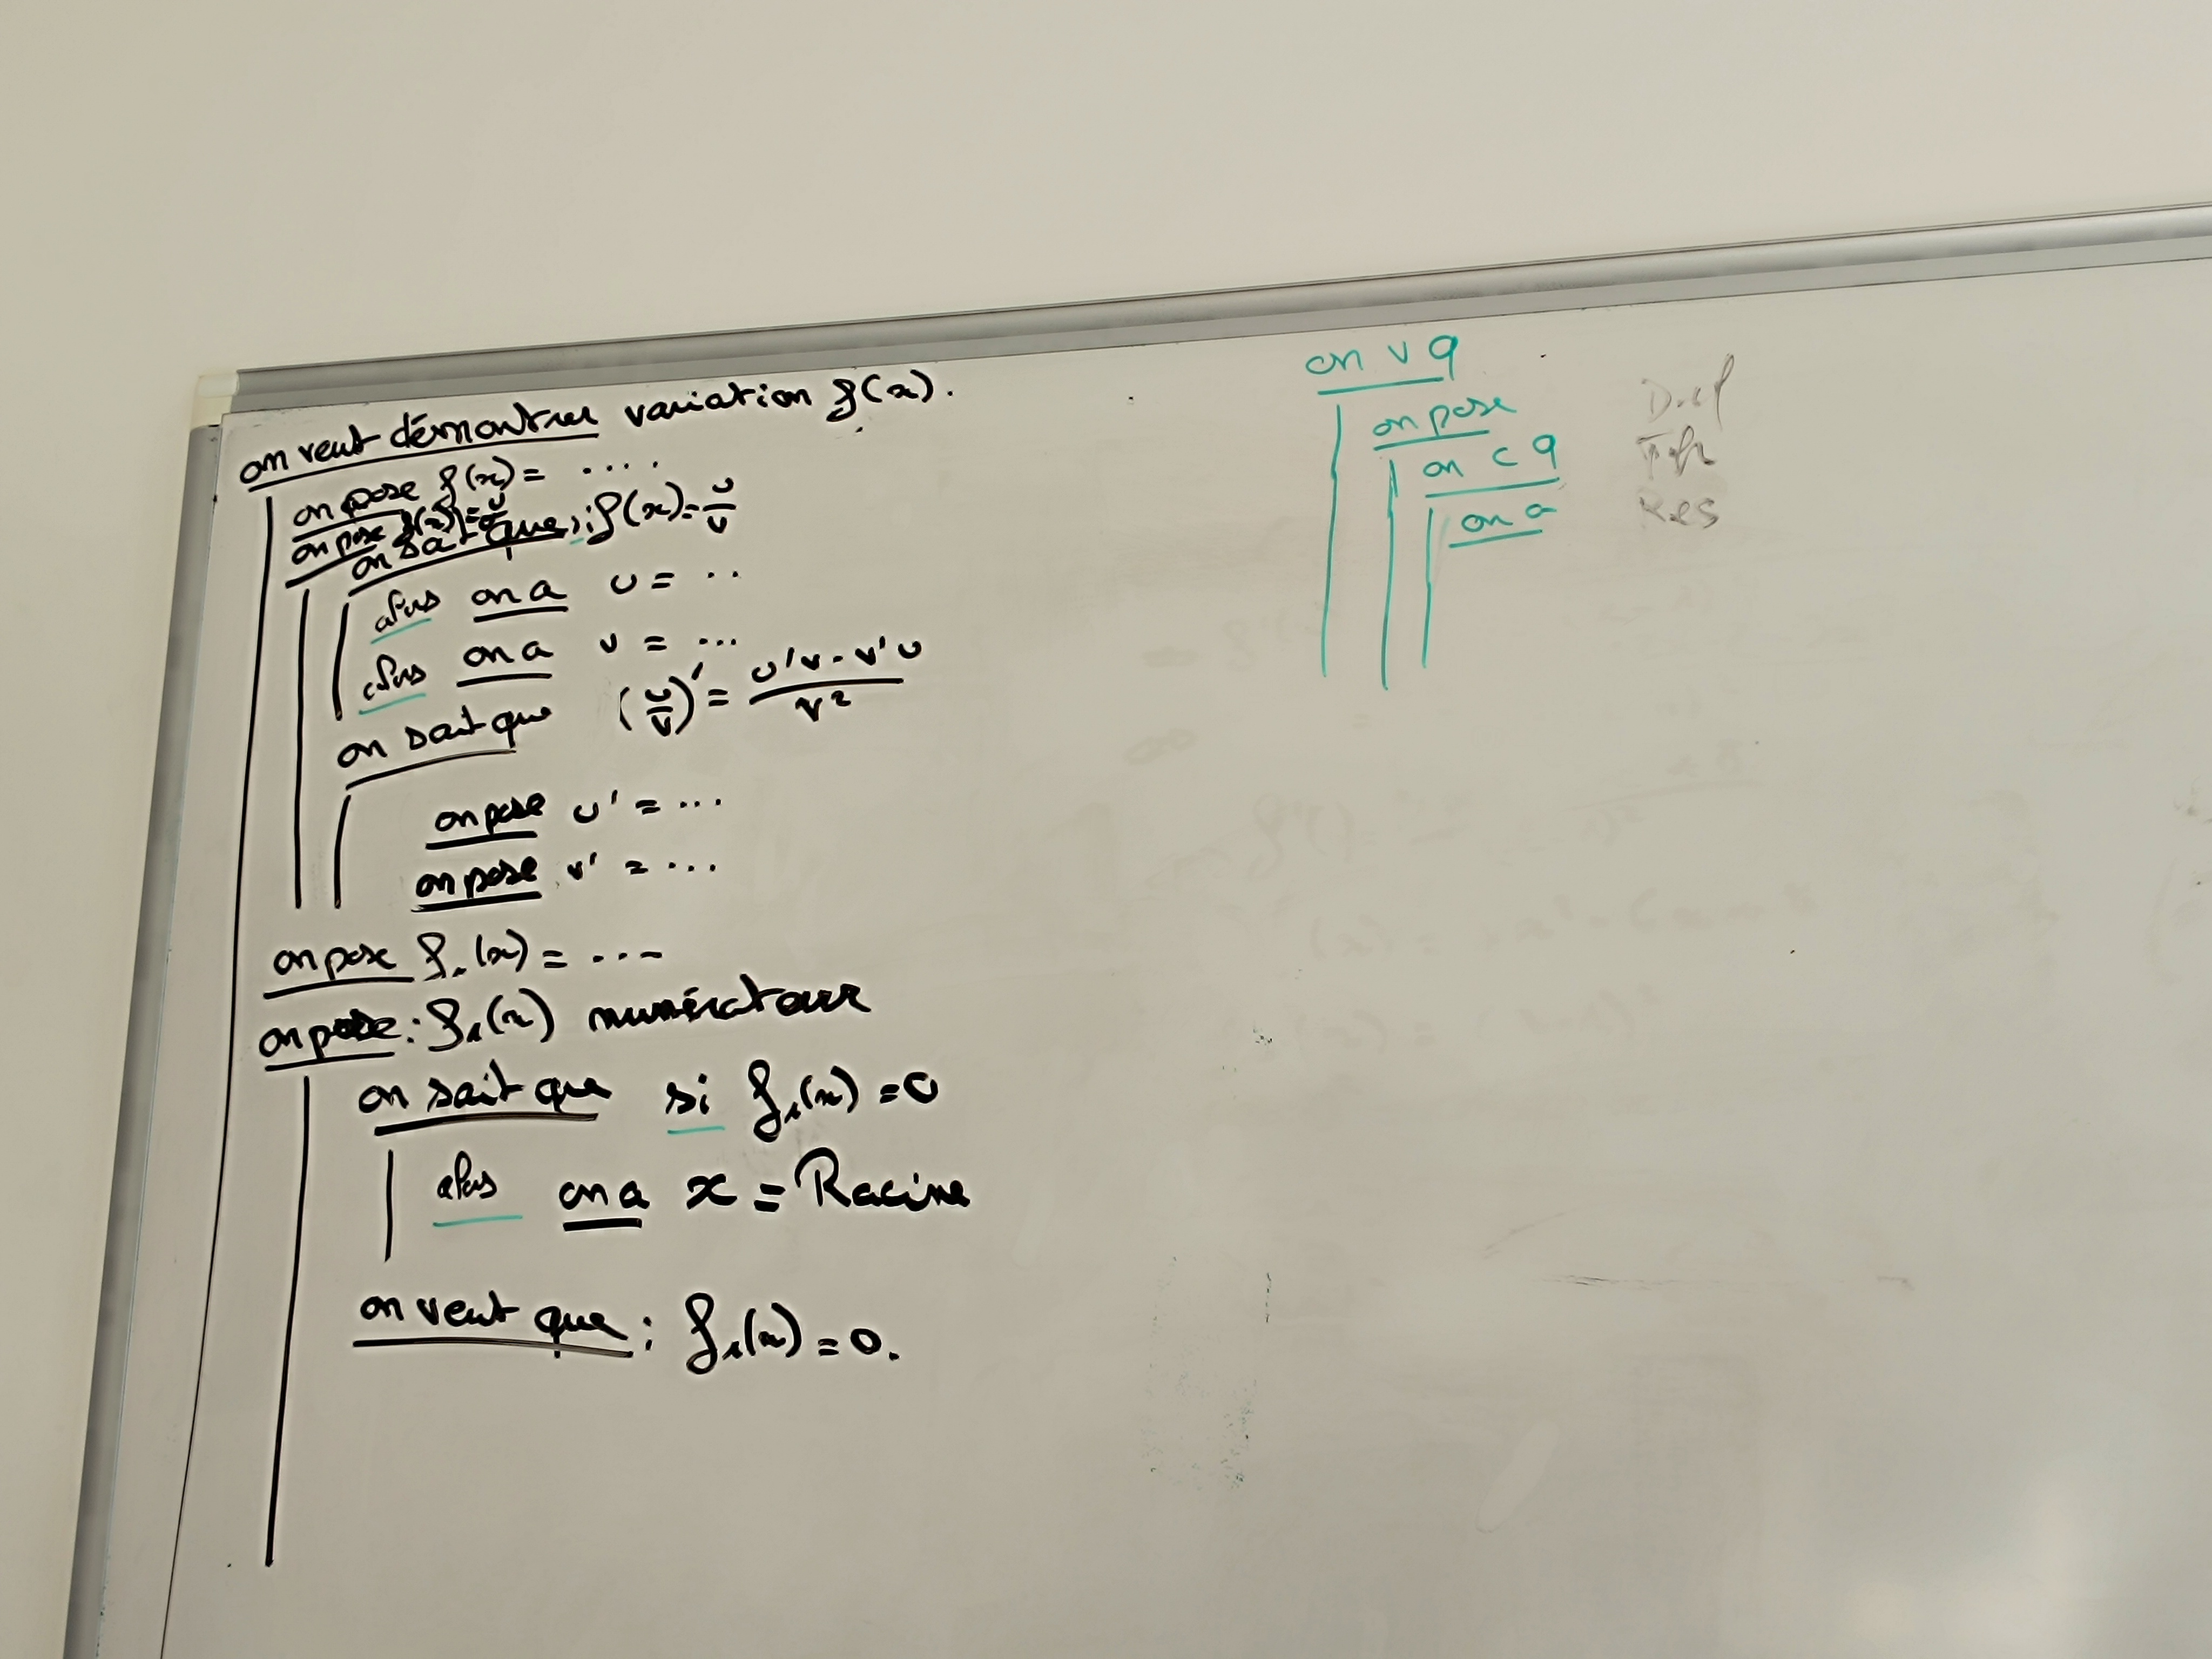 on veut démontrer variation f(x).
on pose f(x) = ....
on pose f(x) = u/v
on sait que si f(x) = u/v
alors on a u = ..
alors on a v = ...
on sait que (u/v)' = (u'v - v'u)/v²
on pose u' = ...
on pose v' = ...
on pose f₁(x) = ...
on pose : f₁(x) numérateur
on sait que si f₁(x) = 0
alors on a x = Racine
on veut que : f₁(x) = 0.
on v q
on pose
on c q
on a
Def
Th
Res